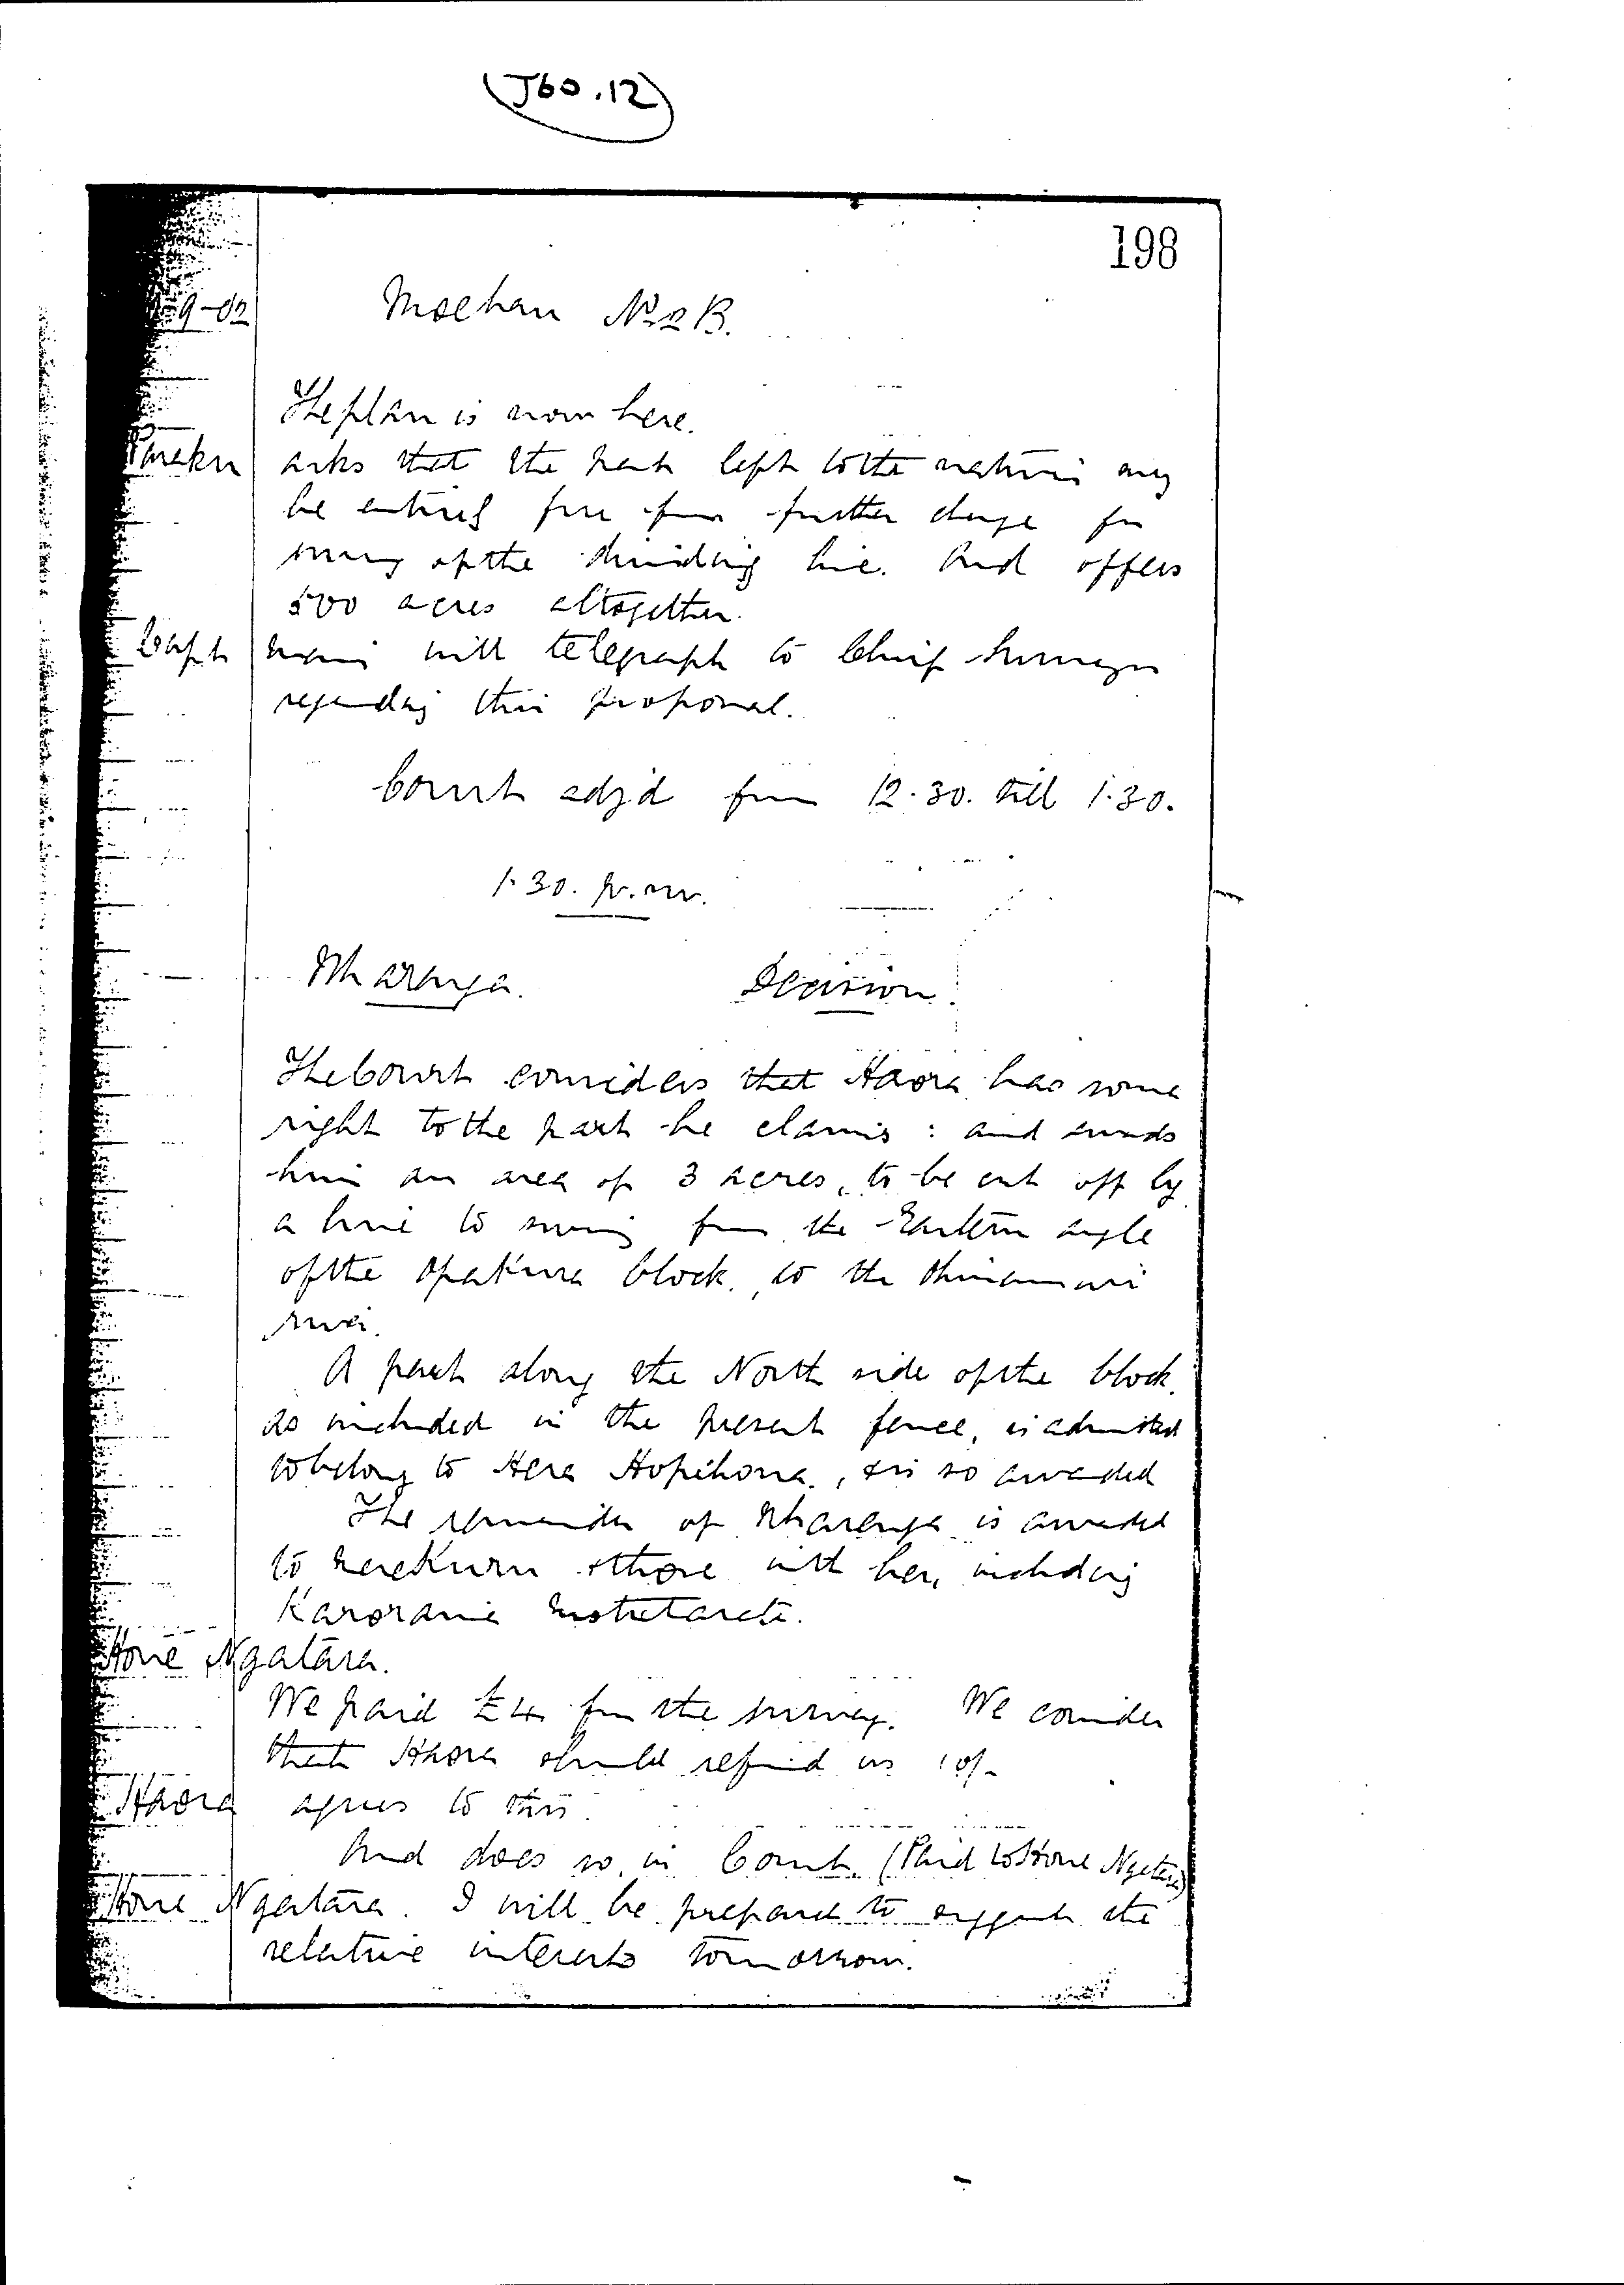 (J60.12)
198
9-02
Moehau No 2 B.
The plan is now here.
asks that the part left to the natives may
be entirely free from further charge for
survey of the dividing line. And offers
500 acres altogether.
Capt will telegraph to Chief Surveyor
regarding this proposal.
Court adj'd from 12.30. till 1.30.
1.30. p.m.
Wharenga. Decision.
The Court considers that Haora has some
right to the part he claims: and awards
him an area of 3 acres, to be cut off by
a line to run from the Eastern angle
of the Opakura block, to the
river.
A part along the North side of the block,
as included in the present fence, is admitted
to belong to Hera Hopihona, & is so awarded
The remainder of is awarded
to Merekura & those with her, including
Kararaina
Hone Ngatara.
We paid £4 for the survey. We consider
that Haora should refund us 10/-
Haora agrees to this.
And does so in Court. (Paid to Hone Ngatara)
Hone Ngatara. I will be prepared to suggest the
relative interests tomorrow.